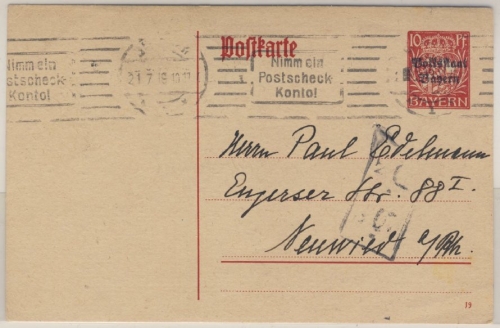 Postkarte
10 PF
Volksstaat
Bayern
BAYERN
Nimm ein
Postscheck-
Konto!
Nimm ein
Postscheck-
Konto!
Herrn Paul Edelmann
Engerser Str. 88 I.
Neuwied a/Rh.
19